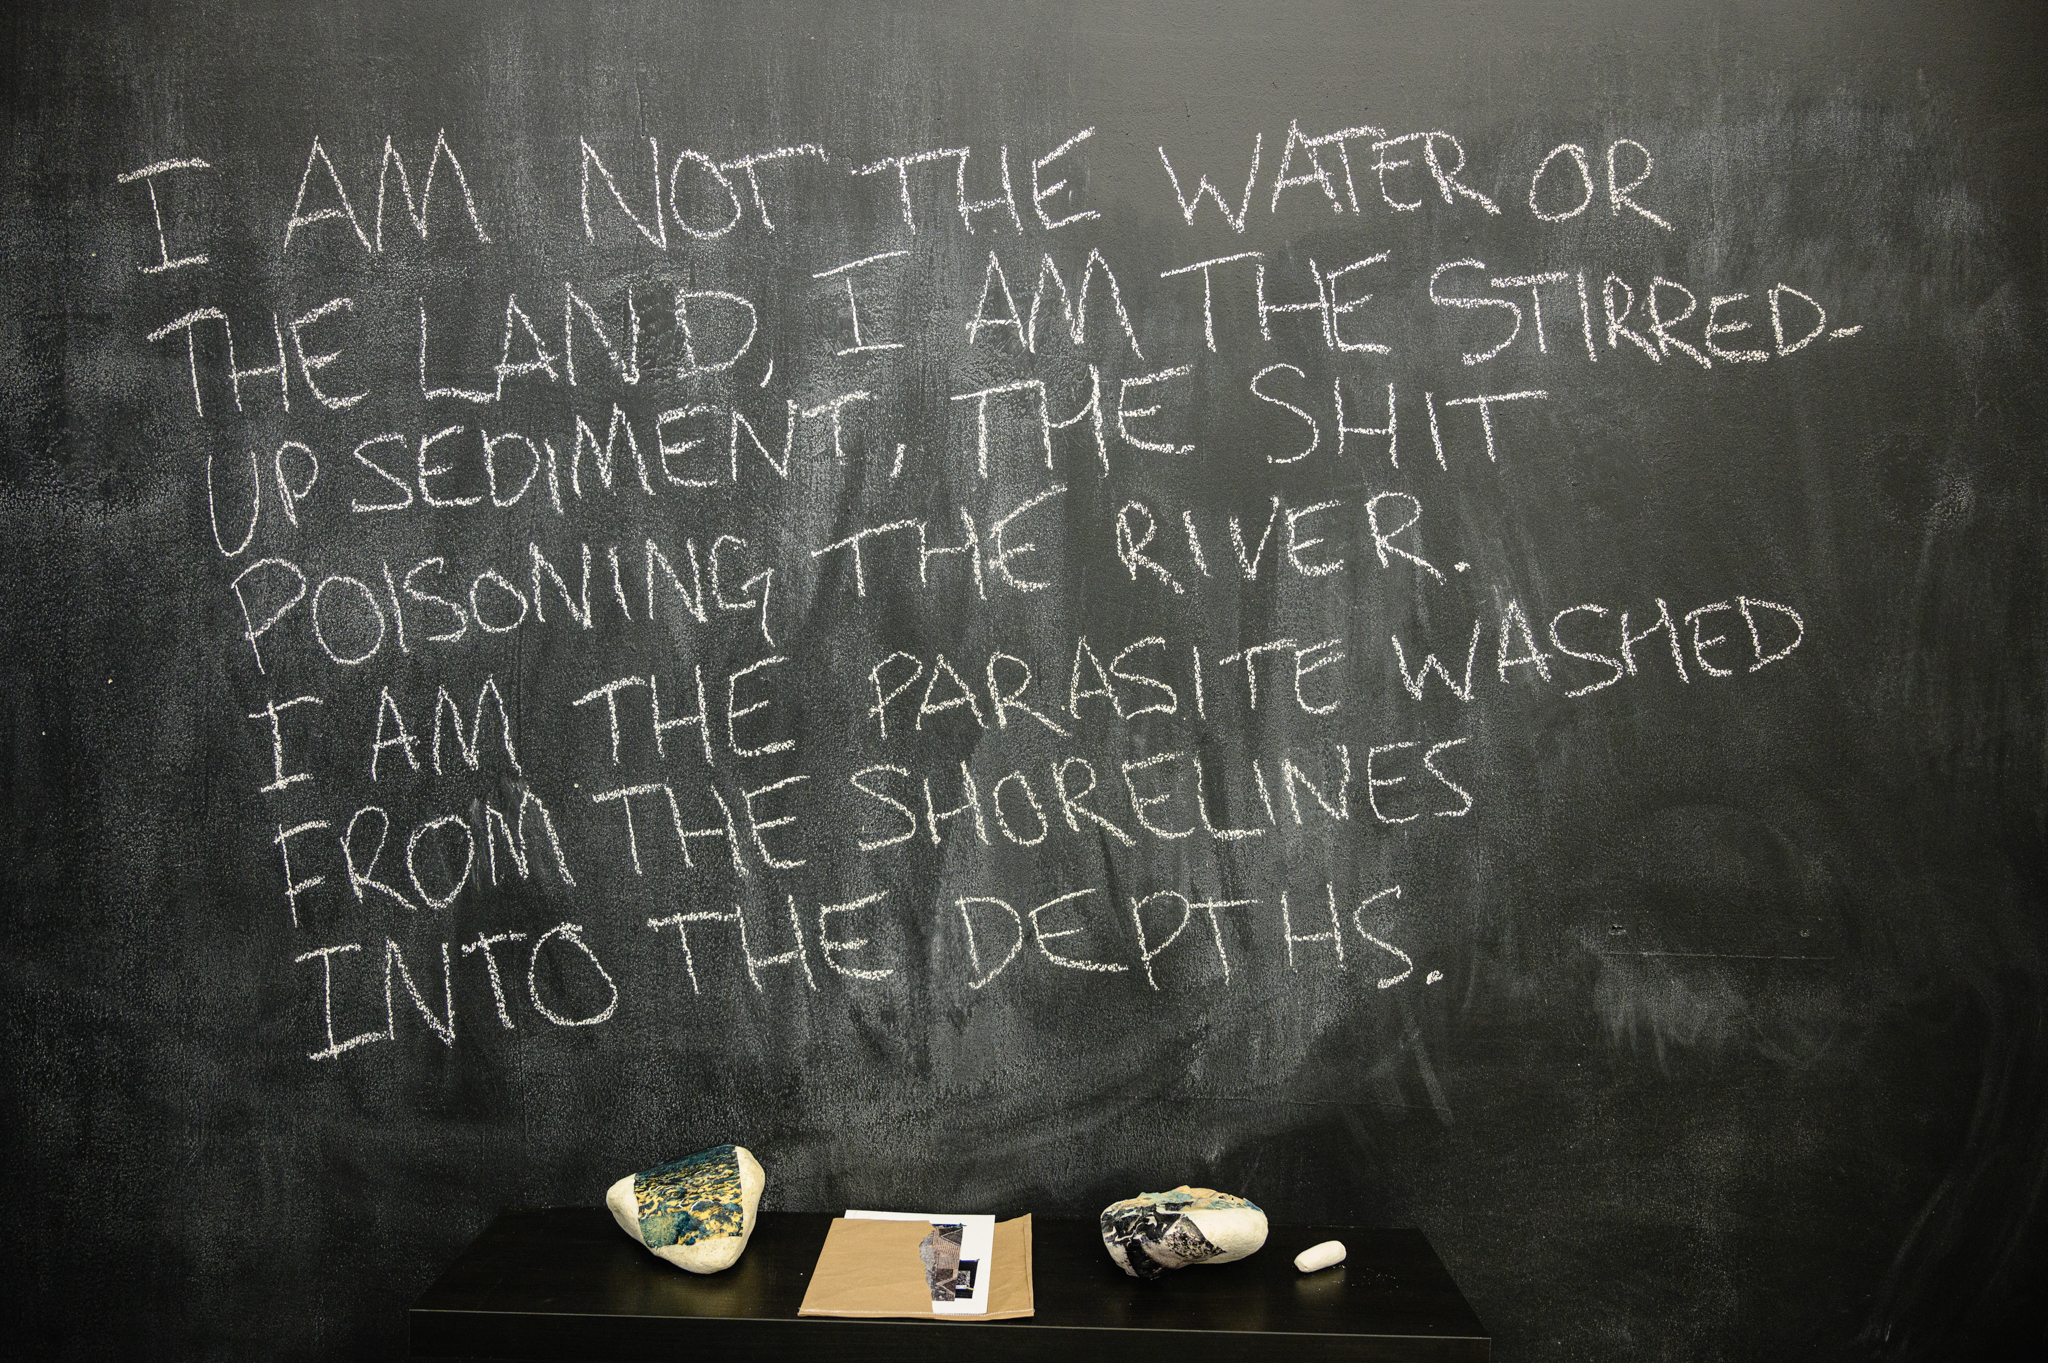 I AM NOT THE WATER OR
THE LAND, I AM THE STIRRED-
UP SEDIMENT, THE SHIT
POISONING THE RIVER.
I AM THE PARASITE WASHED
FROM THE SHORELINES
INTO THE DEPTHS.